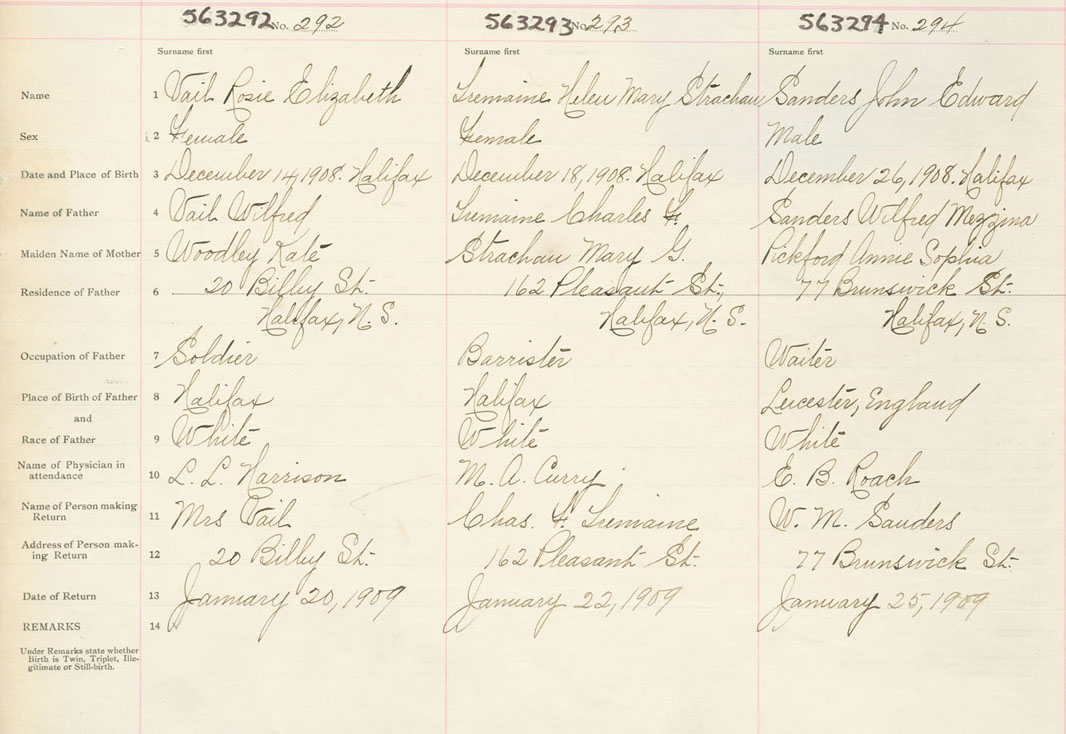 563292 No. 292 563293 No. 293 563294 No. 294
Surname first Surname first Surname first
Name 1 Vail Rosie Elizabeth Tremaine Helen Mary Strachan Sanders John Edward
Sex 2 Female Female Male
Date and Place of Birth 3 December 14, 1908. Halifax December 18, 1908. Halifax December 26, 1908. Halifax
Name of Father 4 Vail Wilfred Tremaine Charles F. Sanders Wilfred Mezzina
Maiden Name of Mother 5 Woodley Kate Strachan Mary G. Pickford Annie Sophia
Residence of Father 6 20 Bilby St. 162 Pleasant St., 77 Brunswick St.
Halifax, N. S. Halifax, N. S. Halifax, N. S.
Occupation of Father 7 Soldier Barrister Waiter
Place of Birth of Father 8 Halifax Halifax Leicester, England
and
Race of Father 9 White White White
Name of Physician in
attendance 10 L. L. Harrison M. A. Curry E. B. Roach
Name of Person making
Return 11 Mrs Vail Chas. F. Tremaine W. M. Sanders
Address of Person mak-
ing Return 12 20 Bilby St. 162 Pleasant St. 77 Brunswick St.
Date of Return 13 January 20, 1909 January 22, 1909 January 25, 1909
REMARKS 14
Under Remarks state whether
Birth is Twin, Triplet, Ille-
gitimate or Still-birth.